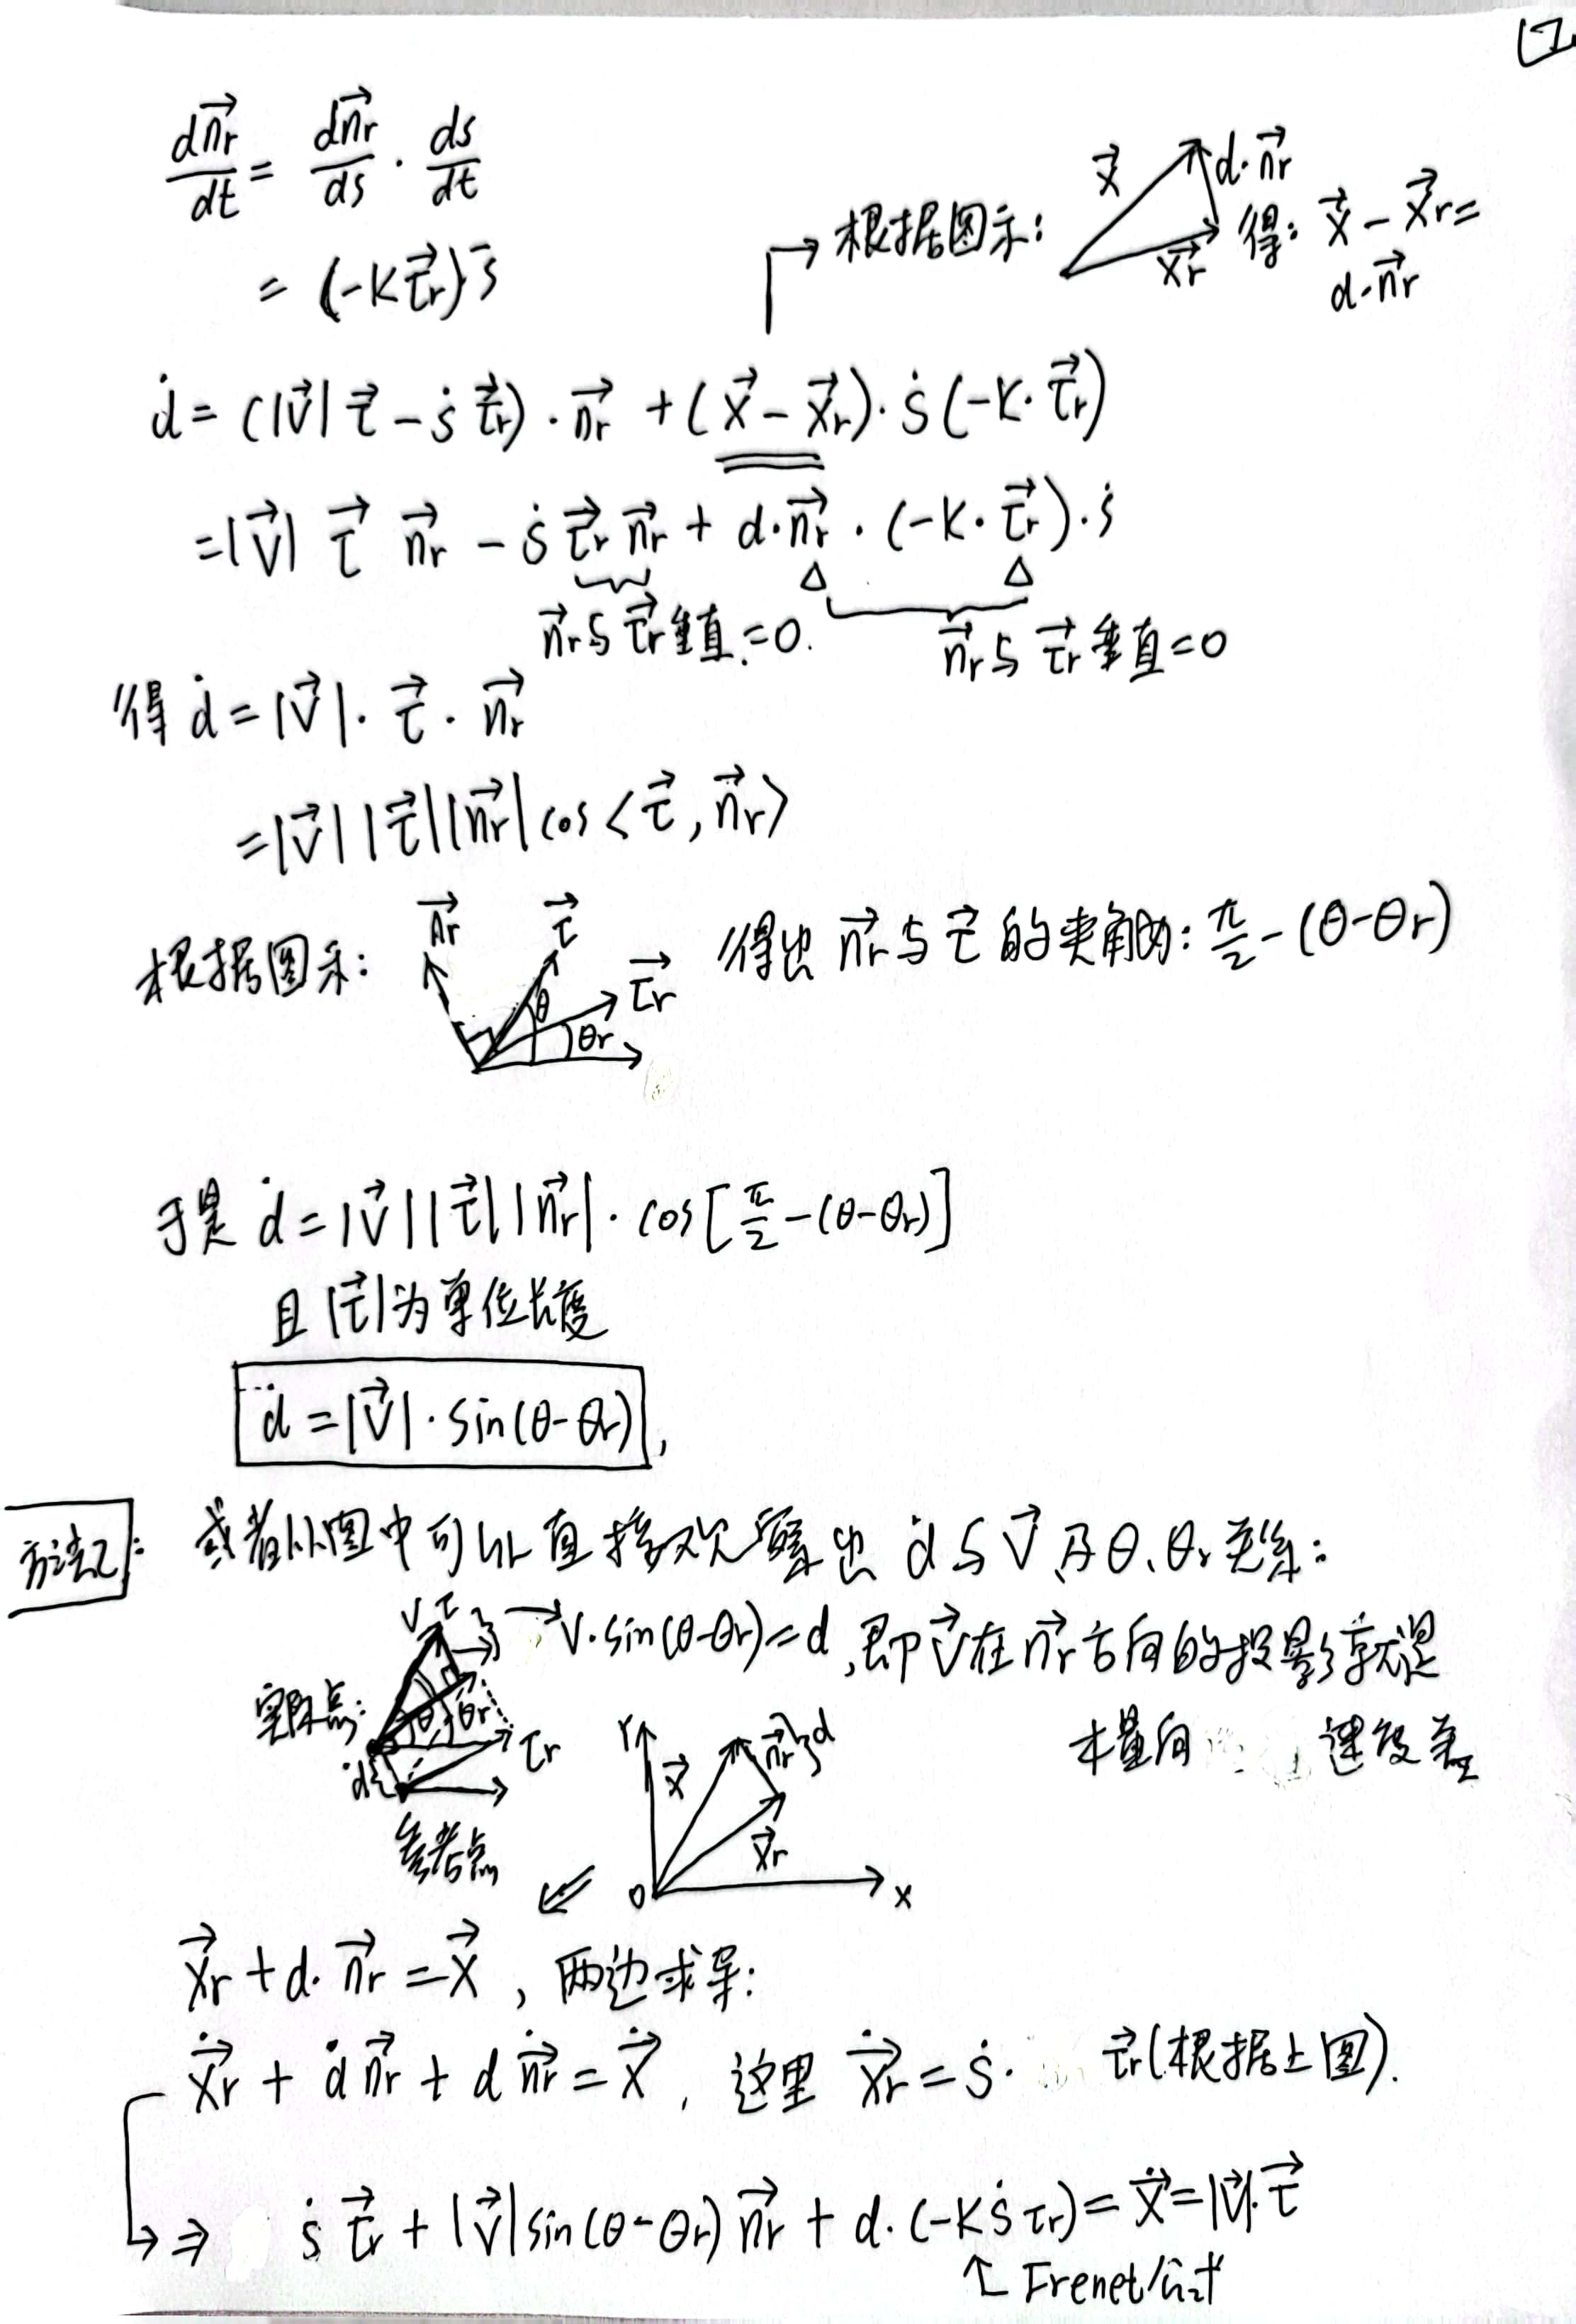 [7]
d\vec{n_r}/dt = d\vec{n_r}/ds · ds/dt
= (-k\vec{τ_r})\dot{s}
→ 根据图示: \vec{x} d·\vec{n_r} \vec{x_r} 得: \vec{x} - \vec{x_r} =
d·\vec{n_r}
\dot{d} = (|\vec{v}|\vec{τ} - \dot{s}\vec{τ_r})·\vec{n_r} + (\vec{x} - \vec{x_r})·\dot{s}(-k·\vec{τ_r})
= |\vec{v}| \vec{τ} \vec{n_r} - \dot{s}\vec{τ_r}\vec{n_r} + d·\vec{n_r}·(-k·\vec{τ_r})·\dot{s}
△ △
\vec{n_r}与\vec{τ_r}垂直=0. \vec{n_r}与\vec{τ_r}垂直=0
得 \dot{d} = |\vec{v}|·\vec{τ}·\vec{n_r}
= |\vec{v}||\vec{τ}||\vec{n_r}|cos<\vec{τ},\vec{n_r}>
根据图示: \vec{n_r} \vec{τ} \vec{τ_r} θ θr 得出 \vec{n_r}与\vec{τ}的夹角为: π/2 - (θ-θr)
于是 \dot{d} = |\vec{v}||\vec{τ}||\vec{n_r}|·cos[π/2 - (θ-θr)]
且|\vec{τ}|为单位长度
\dot{d} = |\vec{v}|·sin(θ-θr),
方法2: 或者从图中可以直接观察出 \dot{d}与\vec{v}及θ、θr关系:
v τ → v·sin(θ-θr)=d, 即\vec{v}在\vec{n_r}方向的投影就是
实际点: θ θr τr \dot{d} 速度
参考点
Y \vec{x} \vec{n_r} d \vec{x_r} O X
\vec{x_r} + d·\vec{n_r} = \vec{x}, 两边求导:
\dot{\vec{x_r}} + \dot{d}\vec{n_r} + d\dot{\vec{n_r}} = \dot{\vec{x}}, 这里 \dot{\vec{x_r}} = \dot{s}· \vec{τ_r}(根据上图).
→ ⇒ \dot{s}\vec{τ_r} + |\vec{v}|sin(θ-θr)\vec{n_r} + d·(-k\dot{s}τr) = \dot{\vec{x}} = |\vec{v}|·\vec{τ}
↑ Frenet公式